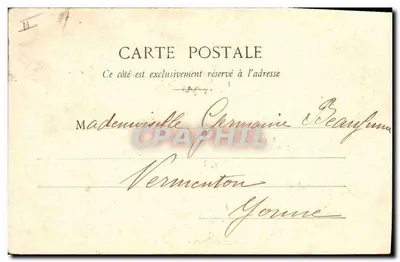 II
CARTE POSTALE
Ce côté est exclusivement réservé à l'adresse
Mademoiselle Germaine Beaufumé
CPAPHIL
Vermenton
Yonne